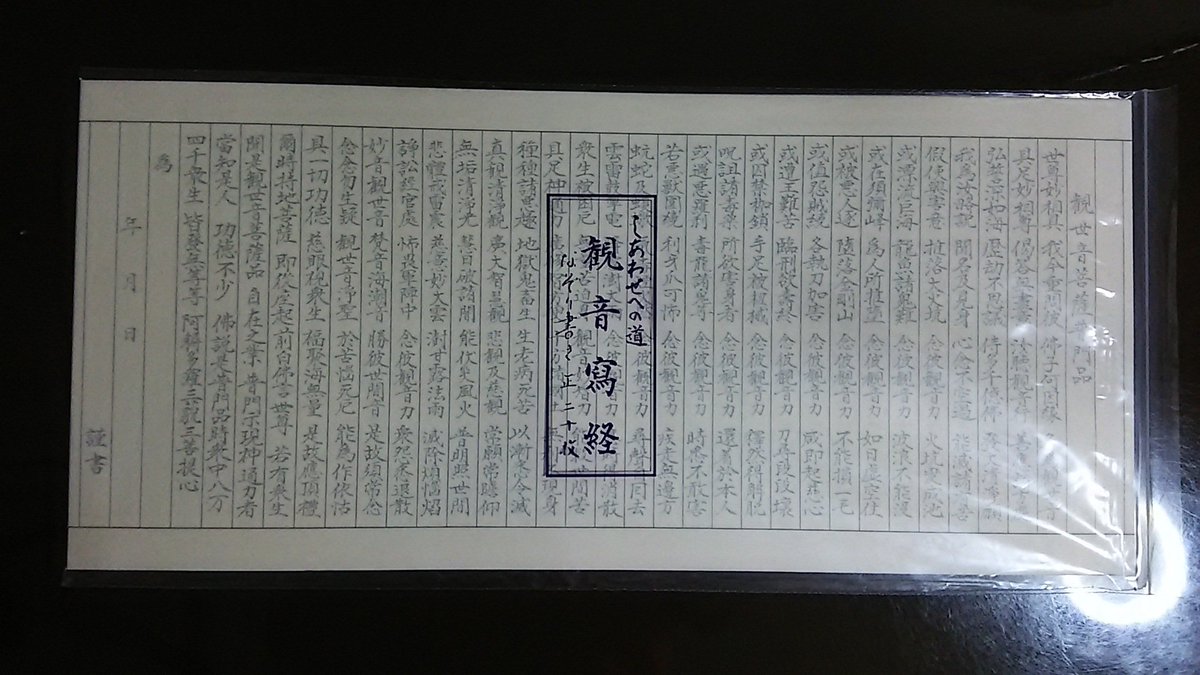 観世音菩薩普門品
世尊妙相具 我今重問彼 佛子何因縁
具足妙相尊 偈答無盡意 汝聴観音行
弘誓深如海 歴劫不思議 侍多千億佛
我為汝略説 聞名及見身 心念不空過 能滅諸有苦
假使興害意 推落大火坑 念彼観音力 火坑変成池
或漂流巨海 龍魚諸鬼難 念彼観音力 波浪不能没
或在須彌峰 為人所推堕 念彼観音力 如日虚空住
或被悪人逐 堕落金剛山 念彼観音力 不能損一毛
或値怨賊繞 各執刀加害 念彼観音力 咸即起慈心
或遭王難苦 臨刑欲壽終 念彼観音力 刀尋段段壊
或囚禁枷鎖 手足被杻械 念彼観音力 釋然得解脱
呪詛諸毒薬 所欲害身者 念彼観音力 還著於本人
或遇悪羅刹 毒龍諸鬼等 念彼観音力 時悉不敢害
若悪獣圍繞 利牙爪可怖 念彼観音力 疾走無邊方
蚖蛇及 念彼観音力 尋聲自回去
雲雷鼓掣電 消散
衆生被困厄 世間苦
具足神 現身
しあわせへの道
観音寫経
なぞり書き 正 二十枚
種種諸悪趣 地獄鬼畜生 生老病死苦 以漸悉令滅
真観清浄観 廣大智慧観 悲観及慈観 常願常瞻仰
無垢清浄光 慧日破諸闇 能伏災風火 普明照世間
悲體戒雷震 慈意妙大雲 澍甘露法雨 滅除煩惱焔
諍訟經官處 怖畏軍陣中 念彼観音力 衆怨悉退散
妙音観世音 梵音海潮音 勝彼世間音 是故須常念
念念勿生疑 観世音浄聖 於苦惱死厄 能為作依怙
具一切功徳 慈眼視衆生 福聚海無量 是故應頂禮
爾時持地菩薩 即從座起 前白佛言 世尊 若有衆生
聞是観世音菩薩品 自在之業 普門示現 神通力者
當知是人 功徳不少 佛説是普門品時 衆中八万
四千衆生 皆發無等等 阿耨多羅三藐三菩提心
為
年 月 日
謹書